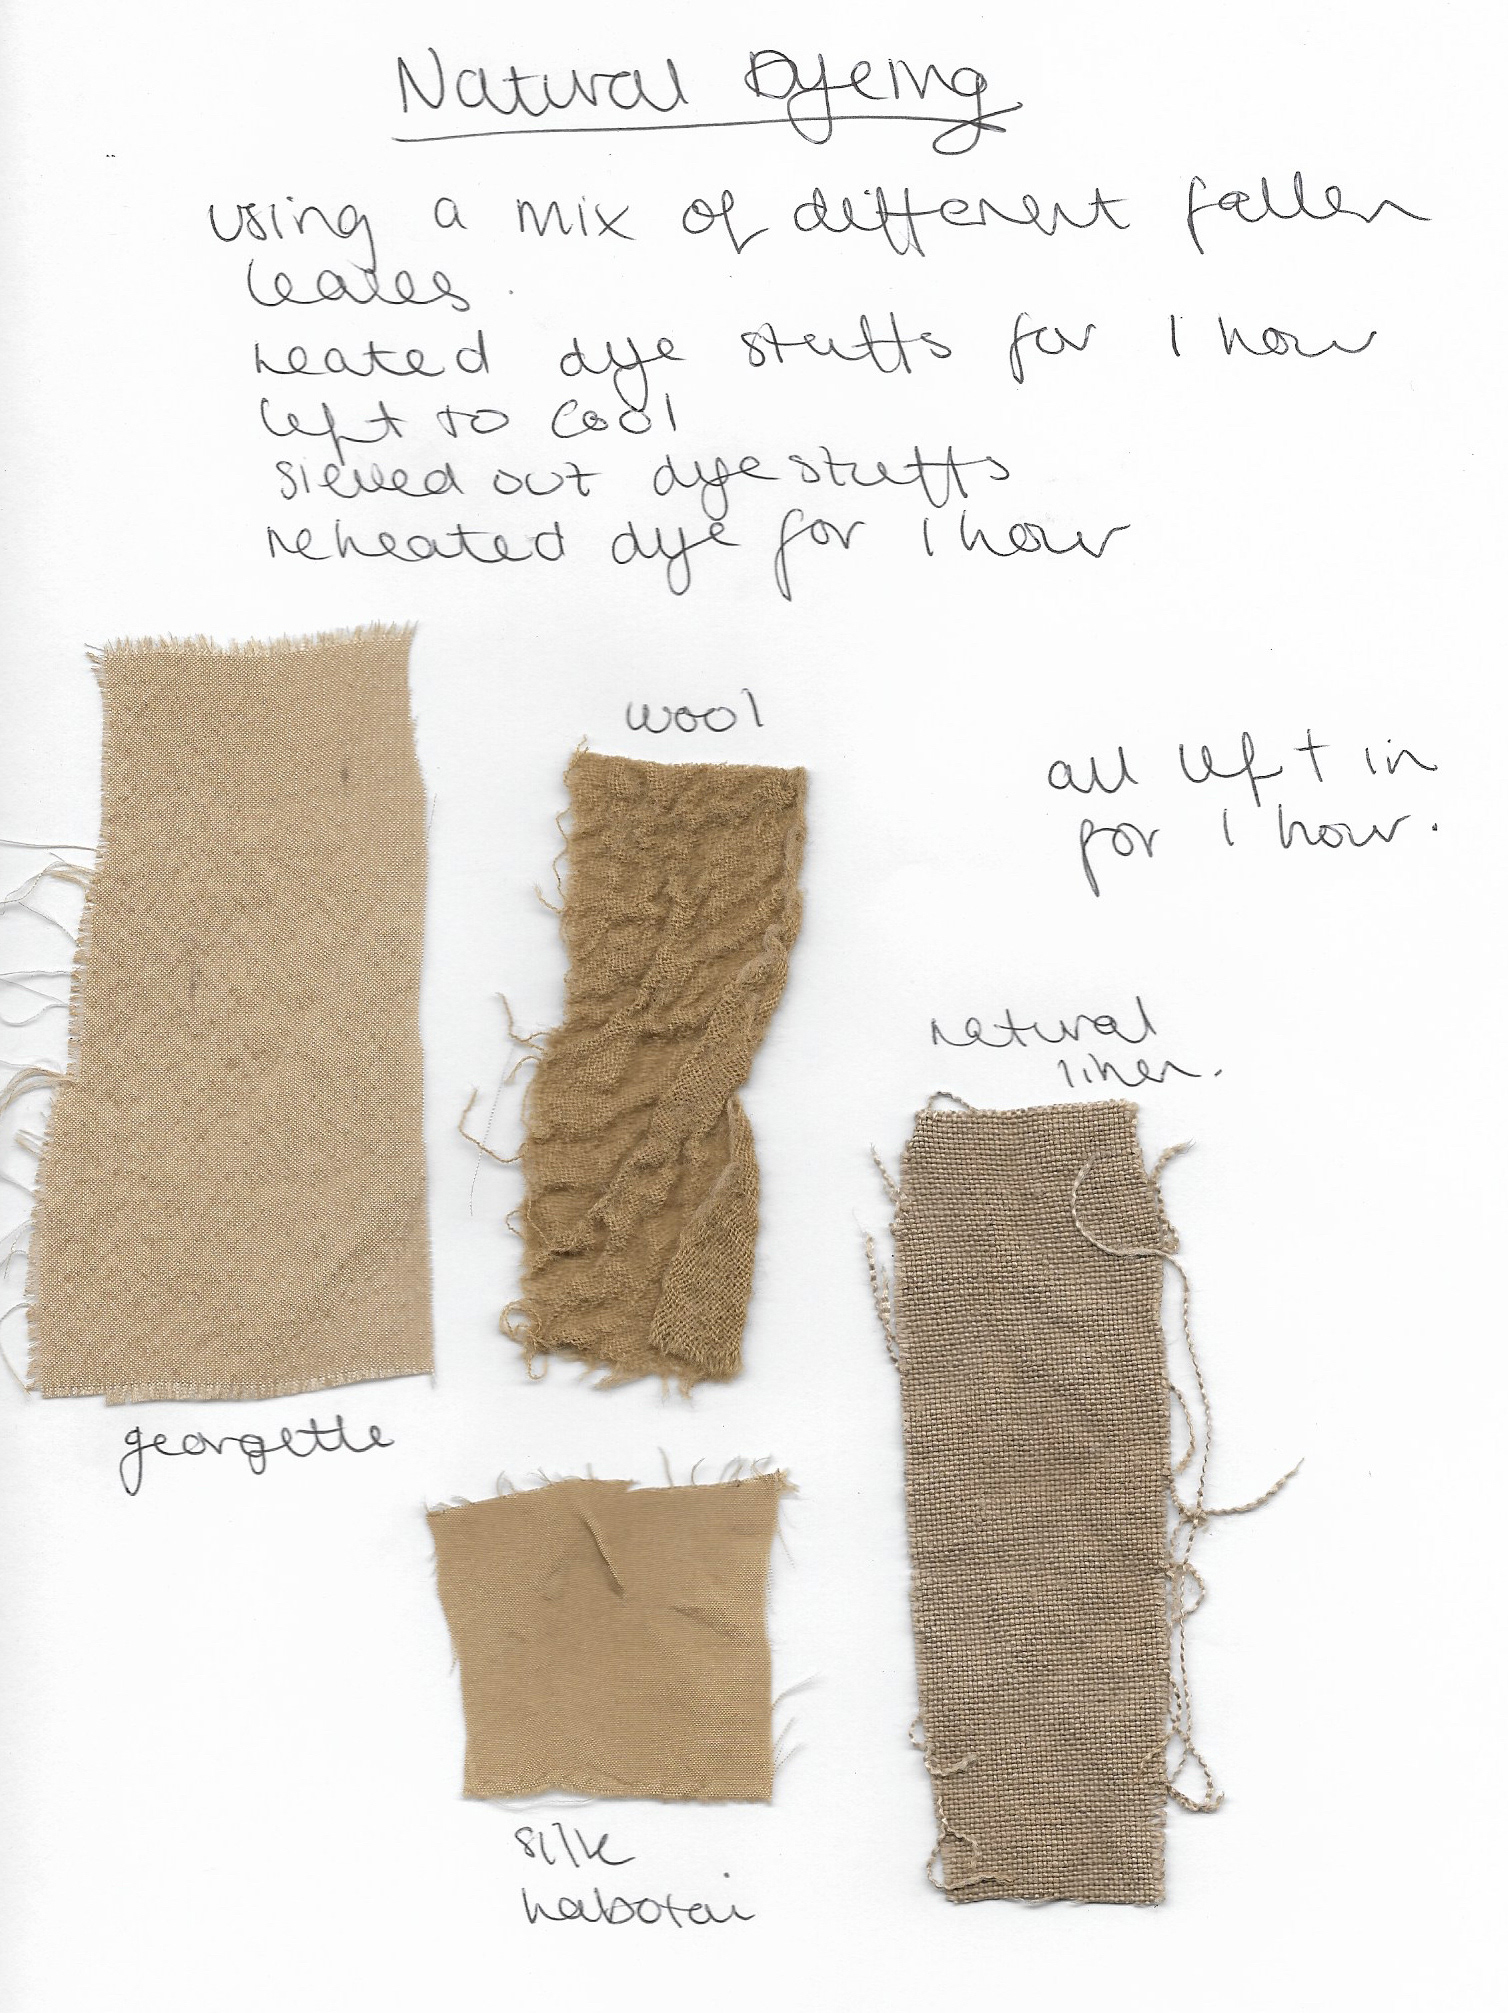 Natural Dyeing
using a mix of different fallen
leaves.
heated dye stuffs for 1 hour
left to cool
sieved out dyestuffs
reheated dye for 1 hour
wool
all left in
for 1 hour.
natural
linen.
georgette
silk
habotai